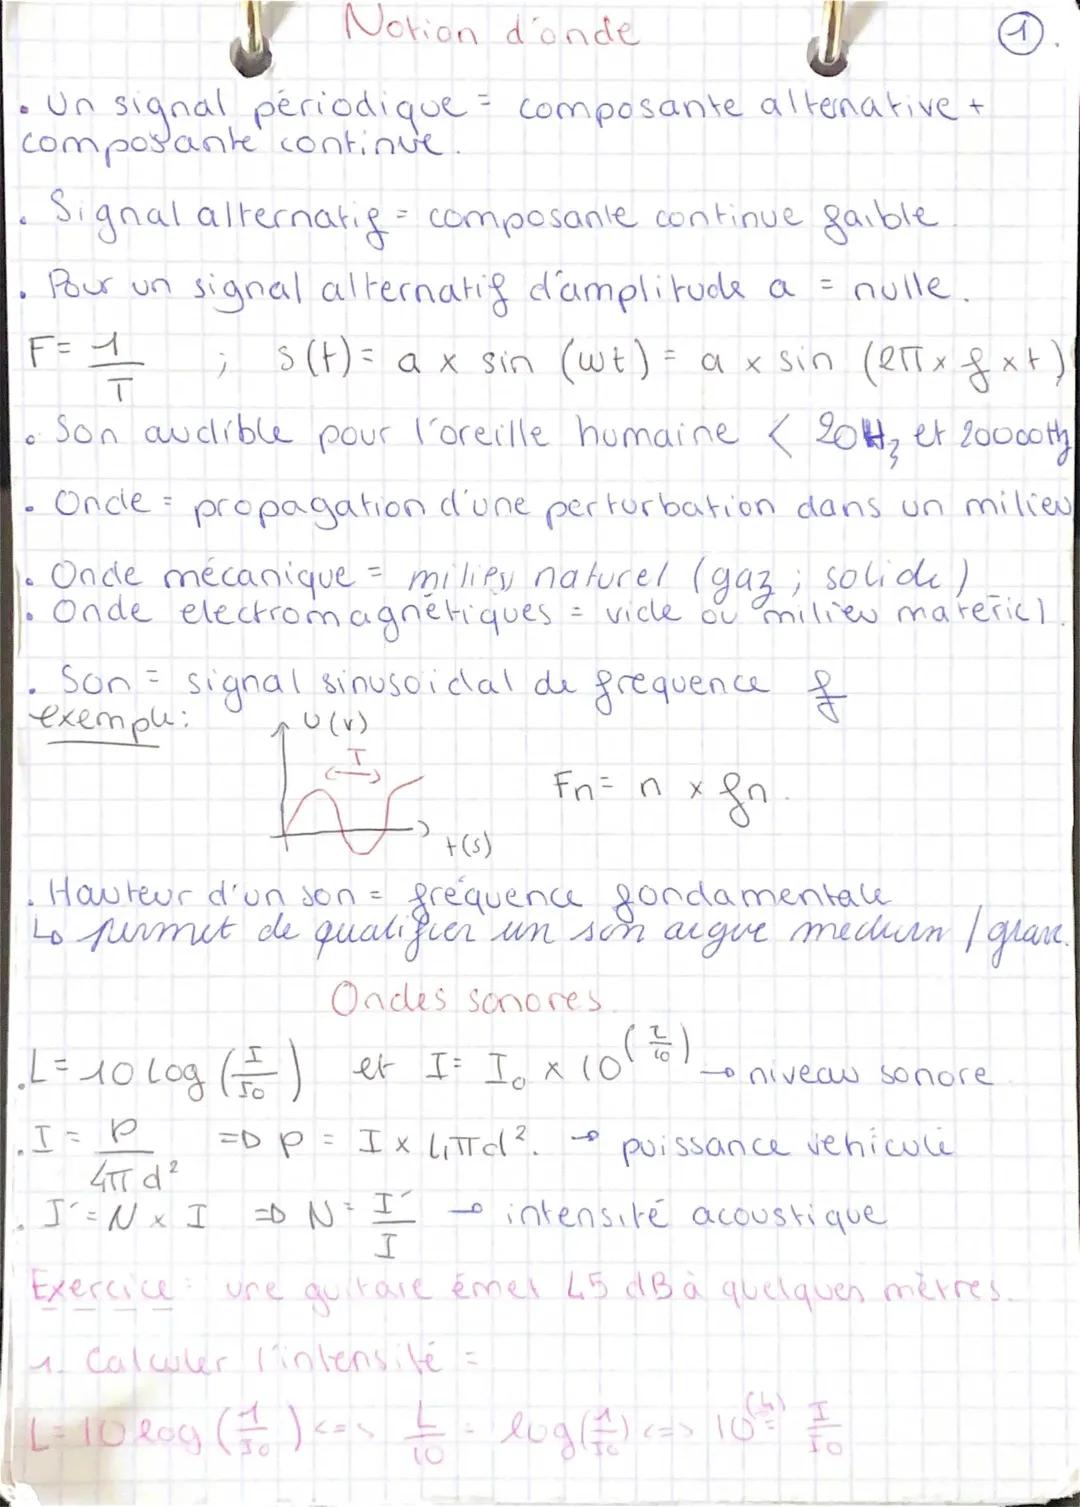 Notion d'onde
1
. Un signal périodique = composante alternative +
composante continue.
. Signal alternatif = composante continue faible
. Pour un signal alternatif d'amplitude a = nulle.
F = 1/T ; s(t) = a x sin (wt) = a x sin (2π x f x t)
. Son audible pour l'oreille humaine < 20Hz et 20000Hz
. Onde = propagation d'une perturbation dans un milieu
. Onde mécanique = milieu naturel (gaz ; solide)
. Onde electromagnétiques = vide ou milieu materiel.
. Son = signal sinusoïdal de frequence f
exemple :
U(v)
T
Fn = n x fn.
t(s)
. Hauteur d'un son = fréquence fondamentale
↳ permet de qualifier un son aigue medium / grave.
Ondes sonores
. L = 10 log (I/I₀) et I = I₀ x 10^(L/10) → niveau sonore
. I = P/4πd² => P = I x 4πd². → puissance vehiculé
. I' = N x I => N = I'/I → intensité acoustique
Exercice : une guitare émet 45 dB à quelques mètres.
1. Calculer l'intensité =
L = 10 log (I/I₀) <=> L/10 = log (I/I₀) <=> 10^(L/10) = I/I₀